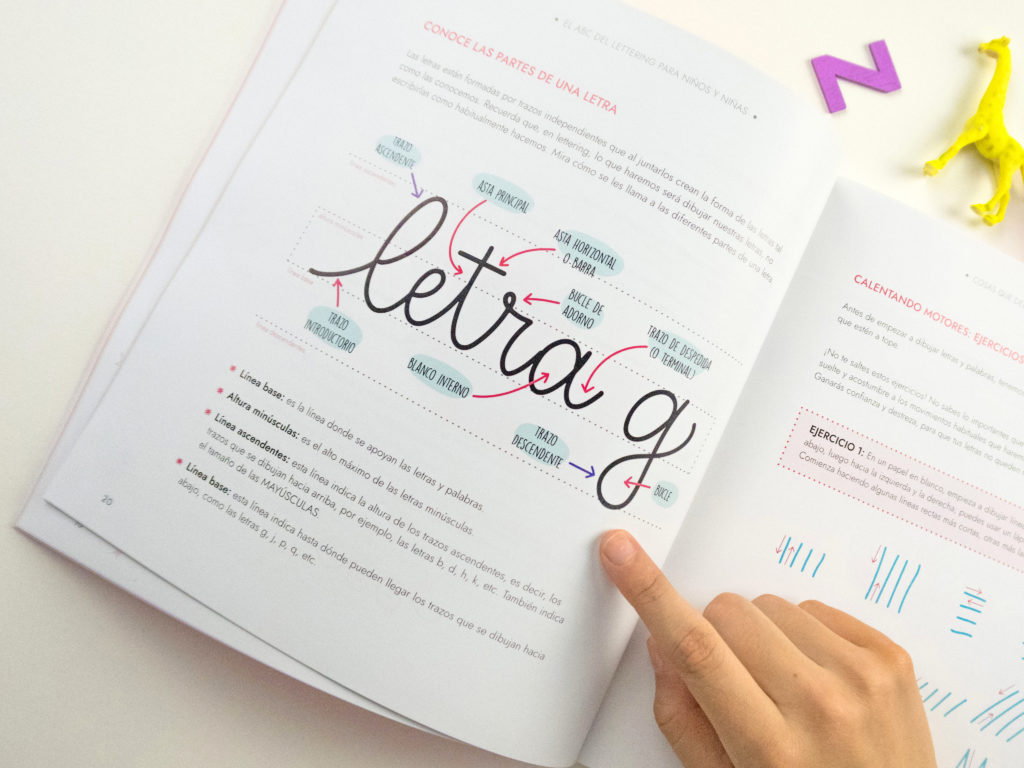 • EL ABC DEL LETTERING PARA NIÑOS Y NIÑAS •
CONOCE LAS PARTES DE UNA LETRA
Las letras están formadas por trazos independientes que al juntarlos crean la forma de las letras tal
como las conocemos. Recuerda que, en lettering, lo que haremos será dibujar nuestras letras, no
escribirlas como habitualmente hacemos. Mira cómo se les llama a las diferentes partes de una letra
TRAZO
ASCENDENTE
ASTA PRINCIPAL
ASTA HORIZONTAL
O BARRA
BUCLE DE
ADORNO
TRAZO DE DESPEDIDA
(O TERMINAL)
letra g
TRAZO
INTRODUCTORIO
BLANCO INTERNO
TRAZO
DESCENDENTE
BUCLE
Línea base: es la línea donde se apoyan las letras y palabras.
Altura minúsculas: es el alto máximo de las letras minúsculas.
Línea ascendentes: esta línea indica la altura de los trazos ascendentes, es decir, los
trazos que se dibujan hacia arriba, por ejemplo, las letras b, d, h, k, etc. También indica
el tamaño de las MAYÚSCULAS.
Línea base: esta línea indica hasta dónde pueden llegar los trazos que se dibujan hacia
abajo, como las letras g, j, p, q, etc.
20
• COSAS QUE DE
CALENTANDO MOTORES: EJERCICIOS
Antes de empezar a dibujar letras y palabras, tenemos
que estén a tope.
¡No te saltes estos ejercicios! No sabes lo importantes que
suelte y acostumbre a los movimientos habituales que haremos
Ganarás confianza y destreza, para que tus letras no queden
EJERCICIO 1: En un papel en blanco, empieza a dibujar líneas
abajo, luego hacia la izquierda y la derecha, puedes usar un lápiz
Comienza haciendo algunas líneas rectas más cortas, otras más la
N